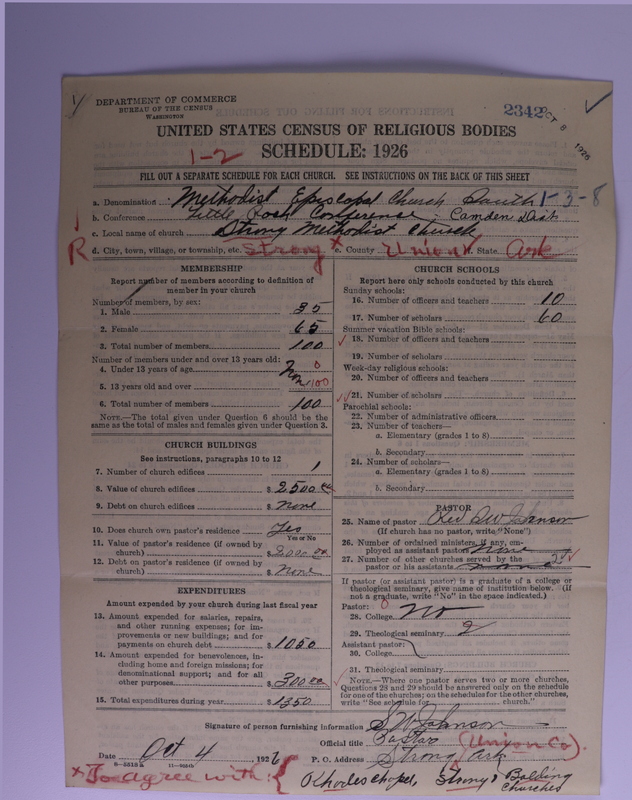 DEPARTMENT OF COMMERCE
BUREAU OF THE CENSUS
WASHINGTON
2342
OCT 8 1926
UNITED STATES CENSUS OF RELIGIOUS BODIES
1-2
SCHEDULE: 1926
FILL OUT A SEPARATE SCHEDULE FOR EACH CHURCH. SEE INSTRUCTIONS ON THE BACK OF THIS SHEET
a. Denomination Methodist Episcopal Church South 1-3-8
b. Conference Little Rock Conference, Camden Dist
c. Local name of church Strong Methodist Church
R d. City, town, village, or township, etc. Strong e. County Union f. State Ark
MEMBERSHIP
Report number of members according to definition of member in your church
Number of members, by sex:
1. Male 35
2. Female 65
3. Total number of members 100
Number of members under and over 13 years old:
4. Under 13 years of age None 0
5. 13 years old and over 100
6. Total number of members 100
NOTE.—The total given under Question 6 should be the same as the total of males and females given under Question 3.
CHURCH BUILDINGS
See instructions, paragraphs 10 to 12
7. Number of church edifices 1
8. Value of church edifices $ 2500.00
9. Debt on church edifices $ None
10. Does church own pastor's residence Yes
Yes or No
11. Value of pastor's residence (if owned by church) $ 2000.00
12. Debt on pastor's residence (if owned by church) $ None
EXPENDITURES
Amount expended by your church during last fiscal year
13. Amount expended for salaries, repairs, and other running expenses; for improvements or new buildings; and for payments on church debt $ 1050
14. Amount expended for benevolences, including home and foreign missions; for denominational support; and for all other purposes $ 300.00
15. Total expenditures during year $ 1350
CHURCH SCHOOLS
Report here only schools conducted by this church
Sunday schools:
16. Number of officers and teachers 10
17. Number of scholars 60
Summer vacation Bible schools:
18. Number of officers and teachers
19. Number of scholars
Week-day religious schools:
20. Number of officers and teachers
21. Number of scholars
Parochial schools:
22. Number of administrative officers
23. Number of teachers—
a. Elementary (grades 1 to 8)
b. Secondary
24. Number of scholars—
a. Elementary (grades 1 to 8)
b. Secondary
PASTOR
25. Name of pastor Rev
(If church has no pastor, write "None")
26. Number of ordained ministers, if any, employed as assistant pastors None
27. Number of other churches served by the pastor or his assistants
If pastor (or assistant pastor) is a graduate of a college or theological seminary, give name of institution below. (If not a graduate, write "No" in the space indicated.)
Pastor: 0
28. College No
29. Theological seminary
Assistant pastor:
30. College
31. Theological seminary
NOTE.—Where one pastor serves two or more churches, Questions 28 and 29 should be answered only on the schedule for one of the churches; on the schedules for the other churches, write "See schedule for church."
Signature of person furnishing information Johnson
Official title Pastor
Date Oct 4, 1926 P. O. Address Strong, Ark (Union Co).
8-5518a
To agree with { Rhodes Chapel, Strong, Bolding Churches